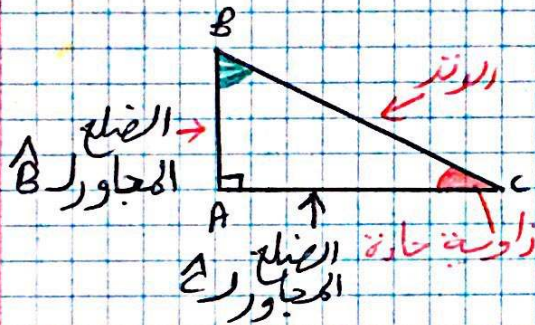 B
الوتر
الضلع
المجاور لـ B̂
A
C
زاوية حادة
الضلع
المجاور لـ Ĉ